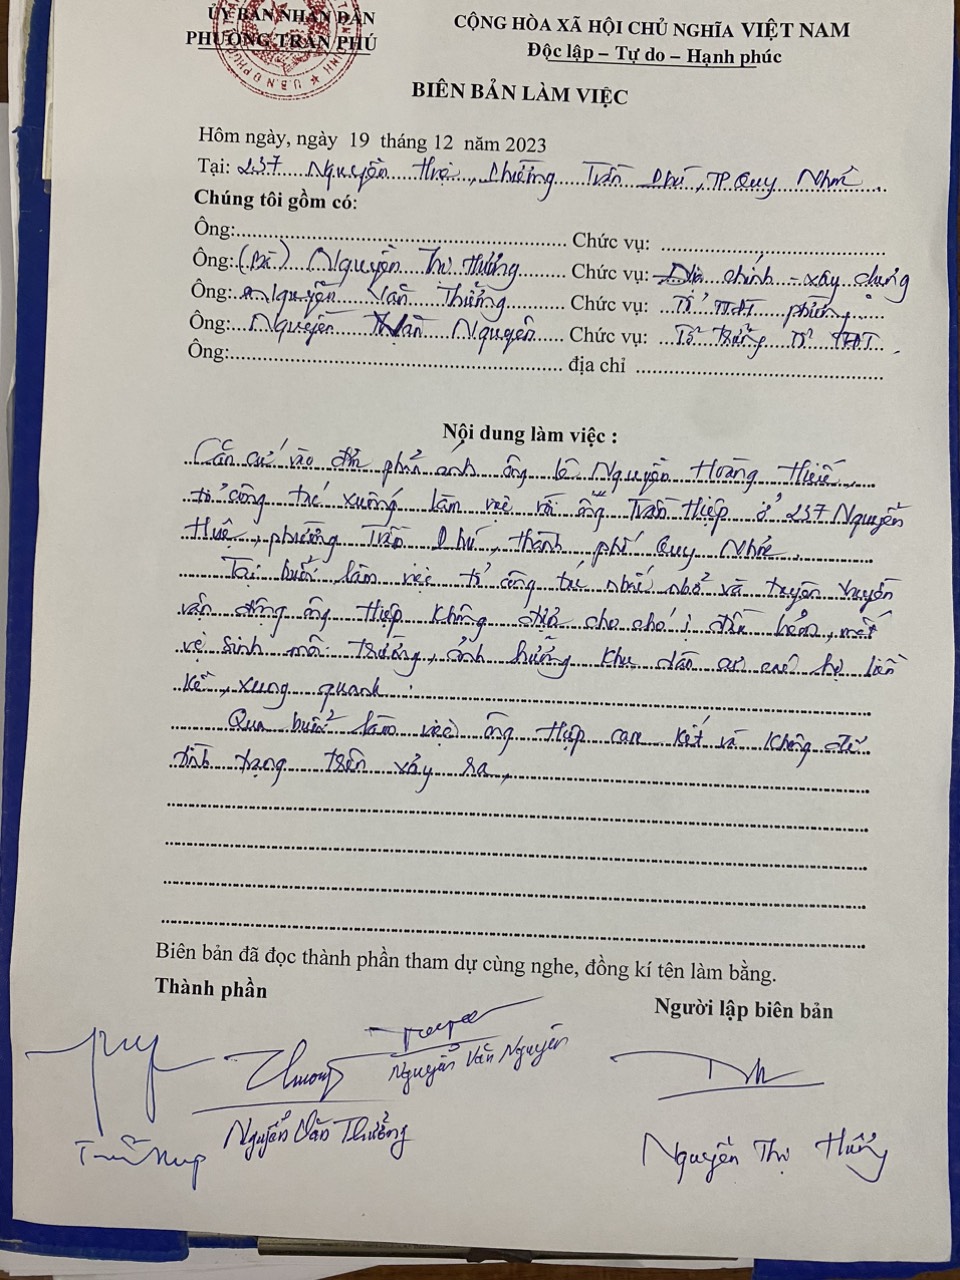 ỦY BAN NHÂN DÂN
PHƯỜNG TRẦN PHÚ
CỘNG HÒA XÃ HỘI CHỦ NGHĨA VIỆT NAM
Độc lập – Tự do – Hạnh phúc
BIÊN BẢN LÀM VIỆC
Hôm ngày, ngày 19 tháng 12 năm 2023
Tại: 237 Nguyễn Huệ, Phường Trần Phú, TP Quy Nhơn.
Chúng tôi gồm có:
Ông: Chức vụ:
Ông: (Bà) Nguyễn Thị Hưởng Chức vụ: Địa chính - xây dựng
Ông: Nguyễn Văn Thưởng Chức vụ: Tổ TTĐT phường
Ông: Nguyễn Văn Nguyên Chức vụ: Tổ trưởng Tổ TTĐT.
Ông: địa chỉ
Nội dung làm việc :
Căn cứ vào đơn phản ánh ông Lê Nguyễn Hoàng Hiếu,
tổ công tác xuống làm việc với ông Trần Hiệp ở 237 Nguyễn
Huệ, phường Trần Phú, thành phố Quy Nhơn.
Tại buổi làm việc tổ công tác nhắc nhở và tuyên truyền
vận động ông Hiệp không được cho chó ị đến bẩn, mất
vệ sinh môi trường, ảnh hưởng khu dân cư các hộ liền
kề, xung quanh.
Qua buổi làm việc ông Hiệp cam kết và không để
tình trạng trên xảy ra,
Biên bản đã đọc thành phần tham dự cùng nghe, đồng kí tên làm bằng.
Thành phần
Người lập biên bản
Nguyễn Văn Nguyên
Nguyễn Văn Thưởng
Nguyễn Thị Hưởng